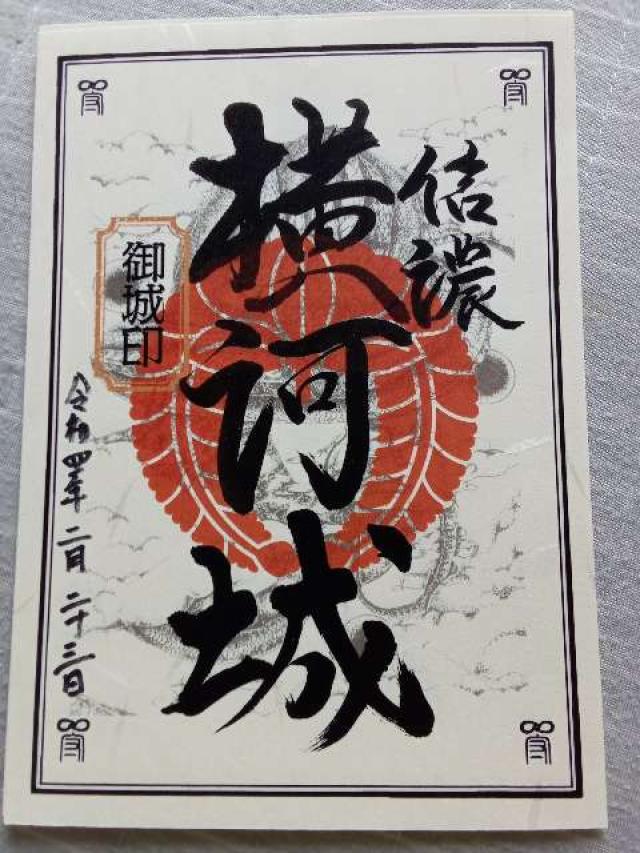 信濃
横河城
御城印
令和四年二月二十三日